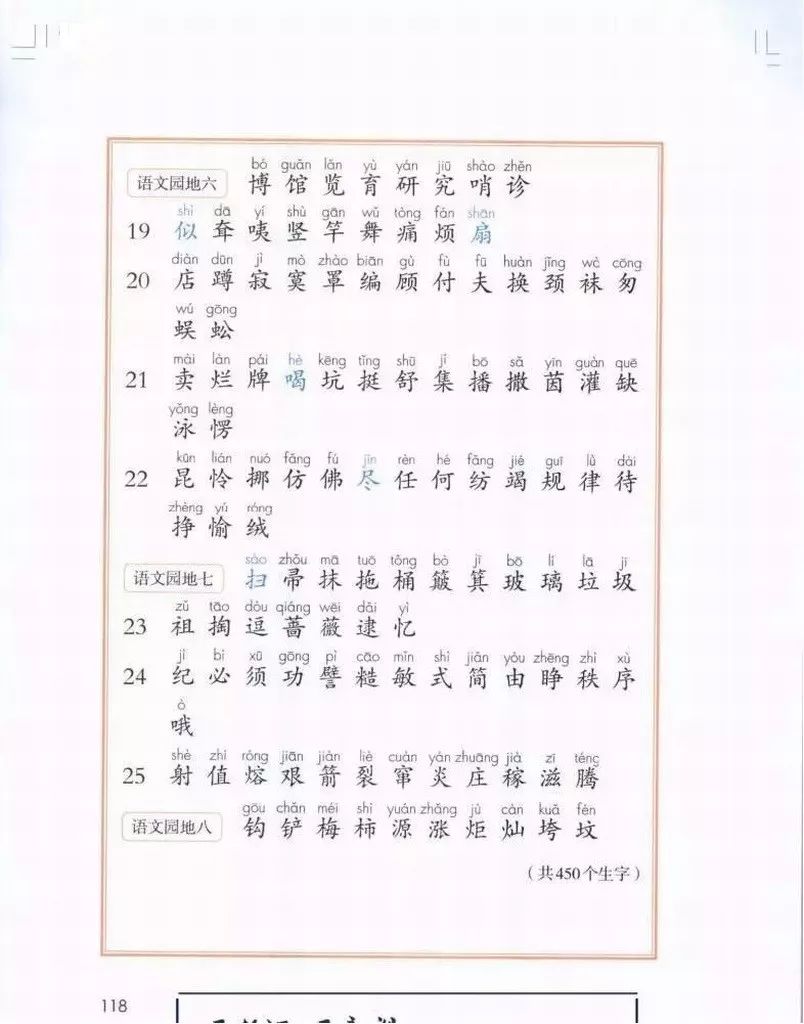 bó guǎn lǎn yù yán jiū shào zhěn
语文园地六 博 馆 览 育 研 究 哨 诊
shì dā yí shù gān wǔ tòng fán shān
19 似 耷 咦 竖 竿 舞 痛 烦 扇
diàn dūn jì mò zhào biān gù fù fū huàn jǐng wà cōng
20 店 蹲 寂 寞 罩 编 顾 付 夫 换 颈 袜 匆
wú gōng
蜈 蚣
mài làn pái hè kēng tǐng shū jí bō sǎ yīn guàn quē
21 卖 烂 牌 喝 坑 挺 舒 集 播 撒 茵 灌 缺
yǒng lèng
泳 愣
kūn lián nuó fǎng fú jǐn rèn hé fǎng jié guī lǜ dài
22 昆 怜 挪 仿 佛 尽 任 何 纺 竭 规 律 待
zhèng yú róng
挣 愉 绒
sào zhǒu mā tuō tǒng bò jī bō lí lā jī
语文园地七 扫 帚 抹 拖 桶 簸 箕 玻 璃 垃 圾
zǔ tāo dòu qiáng wēi dài yì
23 祖 掏 逗 蔷 薇 逮 忆
jì bì xū gōng pì cāo mǐn shì jiǎn yóu zhēng zhì xù
24 纪 必 须 功 譬 糙 敏 式 简 由 睁 秩 序
ò
哦
shè zhí róng jiān jiàn liè cuàn yán zhuāng jià zī téng
25 射 值 熔 艰 箭 裂 窜 炎 庄 稼 滋 腾
gōu chǎn méi shì yuán zhǎng jù càn kuǎ fén
语文园地八 钩 铲 梅 柿 源 涨 炬 灿 垮 坟
（共450个生字）
118